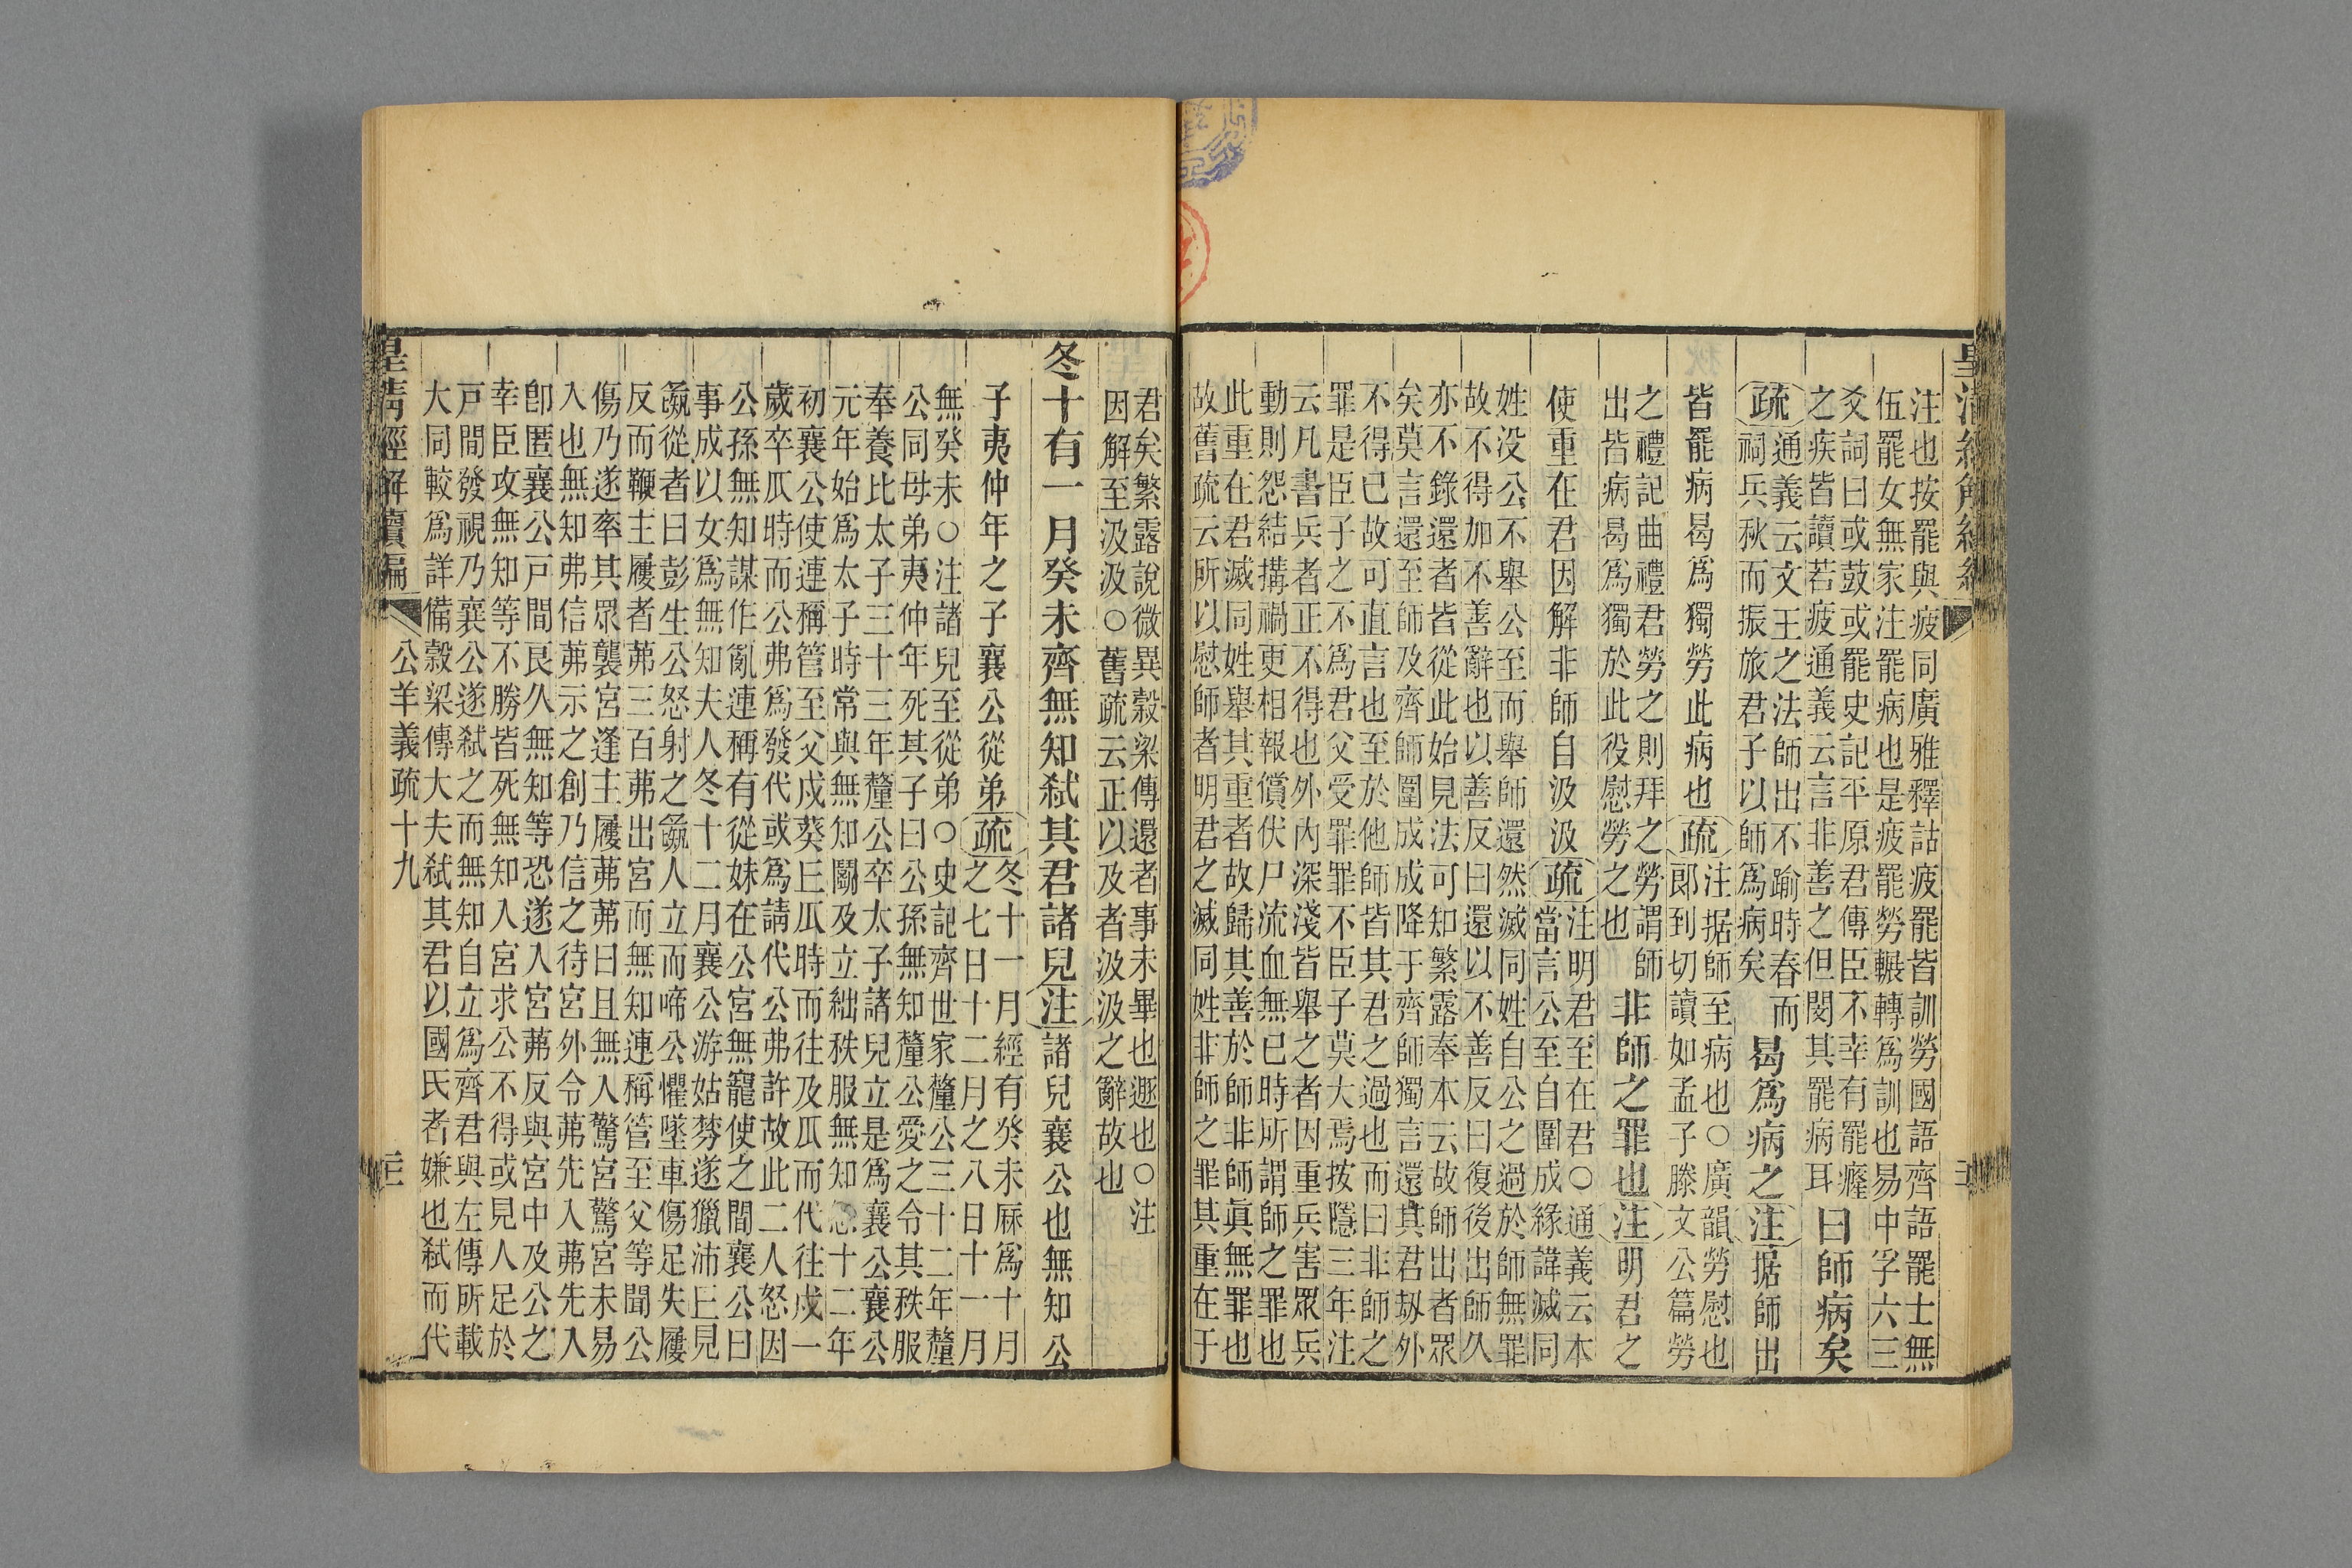 注也按罷與疲同廣雅釋詁疲罷皆訓勞國語齊語罷士無
伍罷女無家注罷病也是疲罷勞輾轉爲訓也易中孚六三
爻詞曰或鼓或罷史記平原君傳臣不幸有罷癃
之疾皆讀若疲通義云言非善之但閔其罷病耳
曰師病矣
疏
通義云文王之法師出不踰時春而
祠兵秋而振旅君子以師爲病矣
曷爲病之注据師出
皆罷病曷爲獨勞此病也疏
注据師至病也○廣韻勞慰也
郎到切讀如孟子滕文公篇勞
之禮記曲禮君勞之則拜之勞謂師
出皆病曷爲獨於此役慰勞之也
非師之罪也注明君之
使重在君因解非師自汲汲疏
注明君至在君○通義云本
當言公至自圍成緣諱滅同
姓没公不舉公至而舉師還然滅同姓自公之過於師無罪
故不得加不善辭也以善反曰還以不善反曰復後出師久
亦不錄還者皆從此始見法可知繁露奉本云故師出者眾
矣莫言還至師及齊師圍成成降于齊師獨言還其君刼外
不得已故可直言也至於他師皆其君之過也而曰非師之
罪是臣子之不爲君父受罪罪不臣子莫大焉按隱三年注
云凡書兵者正不得也外内深淺皆舉之者因重兵害眾兵
動則怨結搆禍更相報償伏尸流血無已時所謂師之罪也
此重在君滅同姓舉其重者故歸其善於師非師眞無罪也
故舊疏云所以慰師者明君之滅同姓非師之罪其重在于
君矣繁露說微異穀梁傳還者事未畢也遯也○注
因解至汲汲○舊疏云正以及者汲汲之辭故也
冬十有一月癸未齊無知弒其君諸兒注諸兒襄公也無知公
子夷仲年之子襄公從弟疏
冬十一月經有癸未厤爲十月
之七日十二月之八日十一月
無癸未○注諸兒至從弟○史記齊世家釐公三十二年釐
公同母弟夷仲年死其子曰公孫無知釐公愛之令其秩服
奉養比太子三十三年釐公卒太子諸兒立是爲襄公襄公
元年始爲太子時常與無知鬭及立絀秩服無知怨十二年
初襄公使連稱管至父戍葵丘瓜時而往及瓜而代往戍一
歲卒瓜時而公弗爲發代或爲請代公弗許故此二人怒因
公孫無知謀作亂連稱有從妹在公宮無寵使之間襄公曰
事成以女爲無知夫人冬十二月襄公游姑棼遂獵沛丘見
彘從者曰彭生公怒射之彘人立而啼公懼墜車傷足失屨
反而鞭主屨者茀三百茀出宮而無知連稱管至父等聞公
傷乃遂率其眾襲宮逢主屨茀茀曰且無入驚宮驚宮未易
入也無知弗信茀示之創乃信之待宮外令茀先入茀先入
卽匿襄公戸間艮久無知等恐遂入宮茀反與宮中及公之
幸臣攻無知等不勝皆死無知入宮求公不得或見人足於
戸間發視乃襄公遂弒之而無知自立爲齊君與左傳所載
大同較爲詳備穀梁傳大夫弒其君以國氏者嫌也弒而代
皇清經解續編
公羊義疏十九